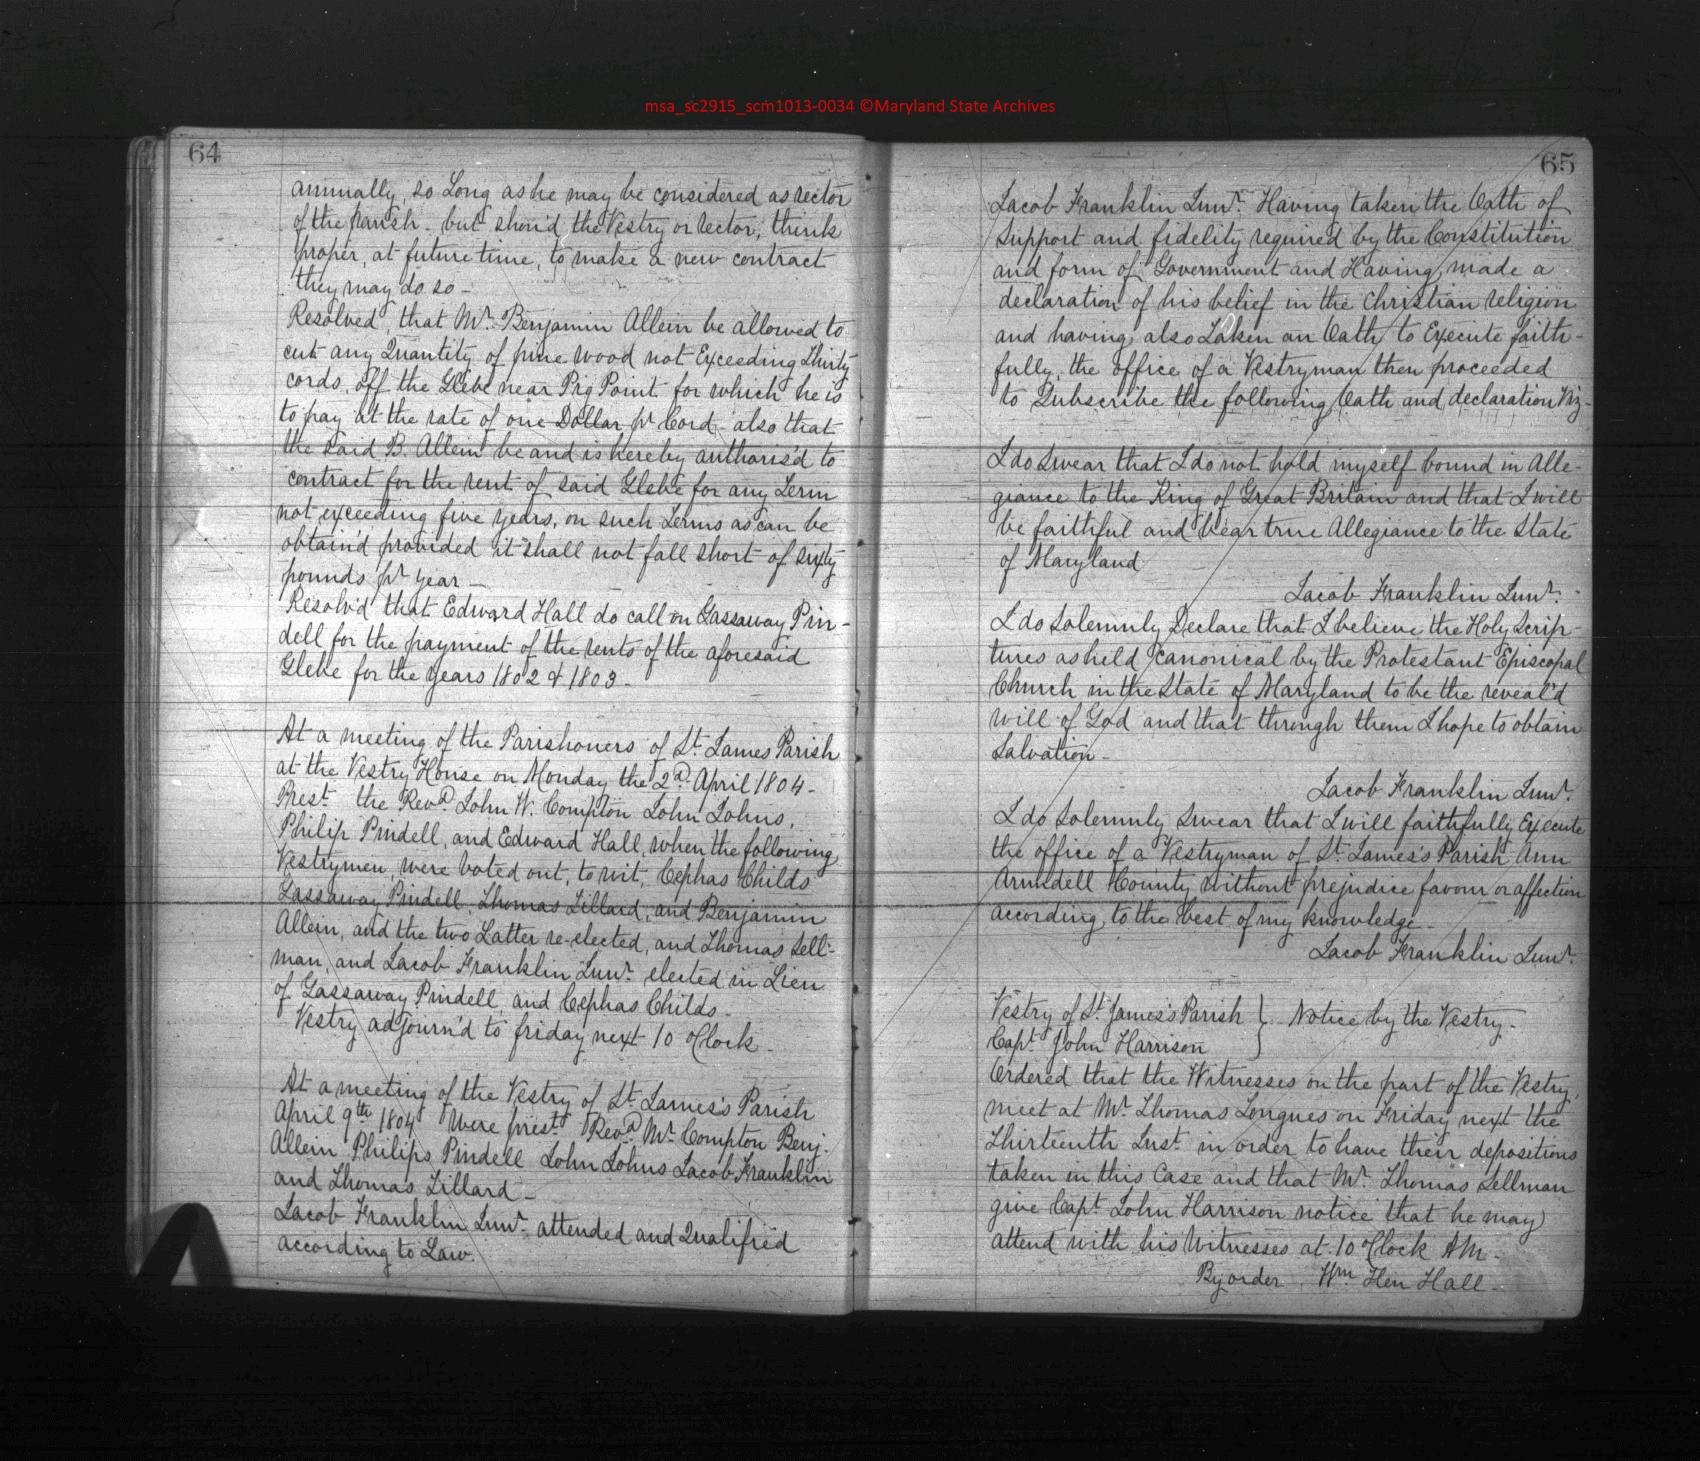 msa_sc2915_scm1013-0034 ©Maryland State Archives
64
annually, so Long as he may be considered as rector
of the parish - but shou'd the Vestry or rector, think
proper, at future time, to make a new contract
they may do so -
Resolved, that Mr. Benjamin Allein be allowed to
cut any Quantity of pine wood not Exceeding Thirty
cords, off the Glebe near Pig Point for which he is
to pay at the rate of one Dollar pr Cord - also that
the said B. Allein be and is hereby authoris'd to
contract for the rent of said Glebe for any Term
not exceeding five years, on such Terms as can be
obtain'd provided it shall not fall short of sixty
pounds pr year -
Resolv'd that Edward Hall do call on Gassaway Pin-
dell for the payment of the rents of the aforesaid
Glebe for the years 1802 & 1803 -
At a meeting of the Parishoners of St. James Parish
at the Vestry House on Monday the 2d. April 1804 -
Prest. the Revd. John W. Compton John Johns,
Philip Pindell, and Edward Hall, when the following
Vestrymen, were voted out, to wit, Cephas Childs
Gassaway Pindell, Thomas Tillard, and Benjamin
Allein, and the two Latter re-elected, and Thomas Sell-
man, and Jacob Franklin Junr. elected in Lieu
of Gassaway Pindell, and Cephas Childs -
Vestry adjourn'd to friday next 10 o'Clock -
At a meeting of the Vestry of St. James's Parish
April 9th 1804 Were prest. Revd. Mr. Compton Benj.
Allein Philips Pindell John Johns Jacob Franklin
and Thomas Tillard -
Jacob Franklin Junr. attended and Qualified
according to Law.
65
Jacob Franklin Junr. Having taken the Oath of
Support and fidelity required by the Constitution
and form of Government and Having, made a
declaration of his belief in the Christian religion
and having also Taken an Oath, to Execute faith-
fully, the office of a Vestryman then proceeded
to Subscribe the following Oath and declaration Viz -
I do Swear that I do not hold myself bound in Alle-
giance to the King of Great Britain and that I will
be faithful and bear true Allegiance to the State
of Maryland
Jacob Franklin Junr.
I do Solemnly Declare that I believe the Holy Scrip-
tures as held canonical by the Protestant Episcopal
Church in the State of Maryland to be the reveal'd
will of God and that through them I hope to obtain
Salvation -
Jacob Franklin Junr.
I do Solemnly Swear that I will faithfully Execute
the office of a Vestryman of St. James's Parish Ann
Arundell County without prejudice favour or affection
according, to the best of my knowledge -
Jacob Franklin Junr.
Vestry of St. James's Parish } Notice by the Vestry -
Capt. John Harrison
Ordered that the Witnesses on the part of the Vestry,
meet at Mr. Thomas Tongues on Friday next the
Thirteenth Inst. in order to have their depositions
taken in this Case and that Mr. Thomas Sellman
give Capt. John Harrison notice that he may
attend with his Witnesses at 10 o'Clock AM -
By order, Wm Hen Hall -